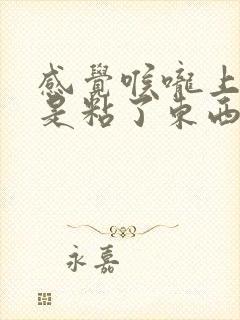 感覺喉嚨上
是粘了东西
永嘉